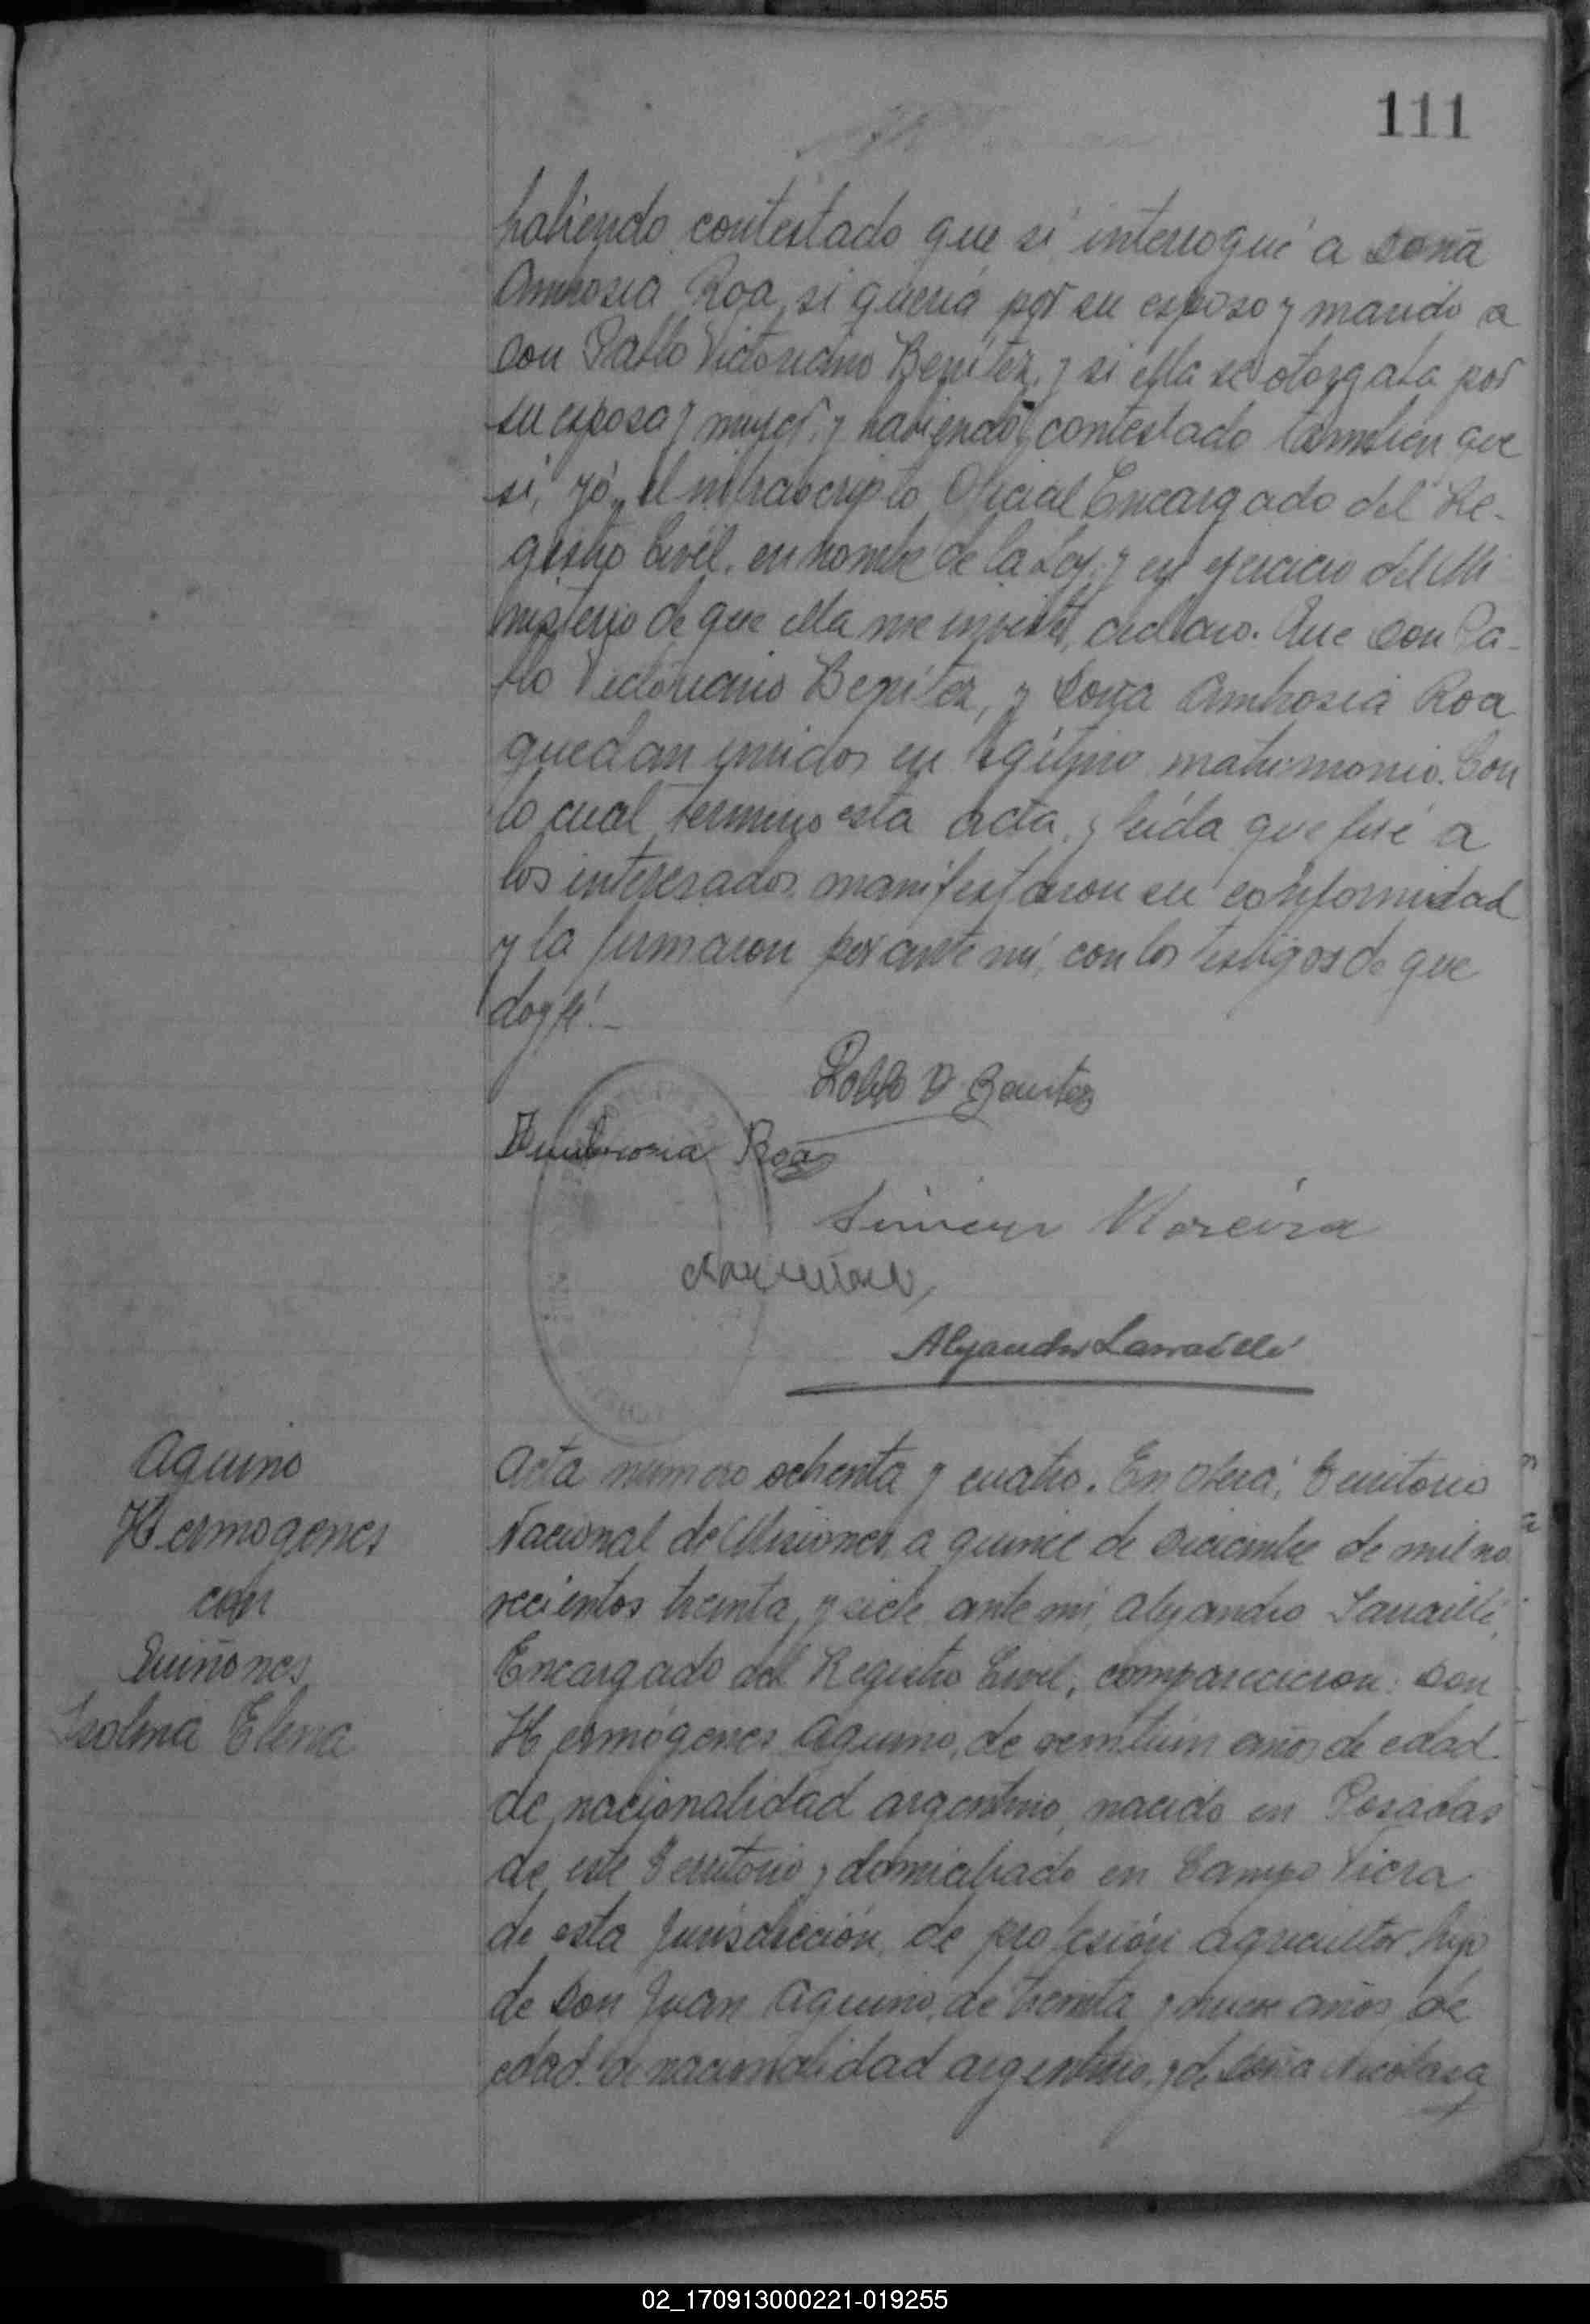 111
habiendo contestado que sí interrogué a doña
Ambrosia Roa, si quería por su esposo y marido a
don Pablo Victoriano Benítez, y si ella se otorgaba por
su esposa y mujer, y habiendo contestado también que
sí, yó, el infrascripto Oficial Encargado del Re-
gistro Civil, en nombre de la Ley, y en ejercicio del Mi
nisterio de que ella me inviste, declaro. Que don Pa-
blo Victoriano Benítez, y doña Ambrosia Roa
quedan unidos en legítimo matrimonio. Con
lo cual termino esta acta, y leída que fué a
los interesados, manifestaron su conformidad
y la firmaron por ante mí, con los testigos de que
doy fé.-
Pablo V Benitez
Ambrosia Roa
Simeon Moreira
Alejandro Larraillé
Aquino
Hermogenes
con
Quiñones
Isolina Elena
Acta numero ochenta y cuatro. En Oberá, Territorio
Nacional de Misiones, a quince de Diciembre de mil no
vecientos treinta y siete, ante mí, Alejandro Larraillé,
Encargado del Registro Civil, comparecieron: Don
Hermógenes Aquino, de veintiun años de edad
de nacionalidad argentino, nacido en Posadas
de este Territorio y domiciliado en Campo Viera
de esta jurisdicción, de profesión agricultor, hijo
de Don Juan Aquino, de treinta y nueve años de
edad, de nacionalidad argentino, y de doña Nicolasa
02_170913000221-019255